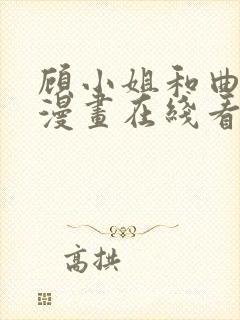 顾小姐和曲
漫畫在线看
高拱